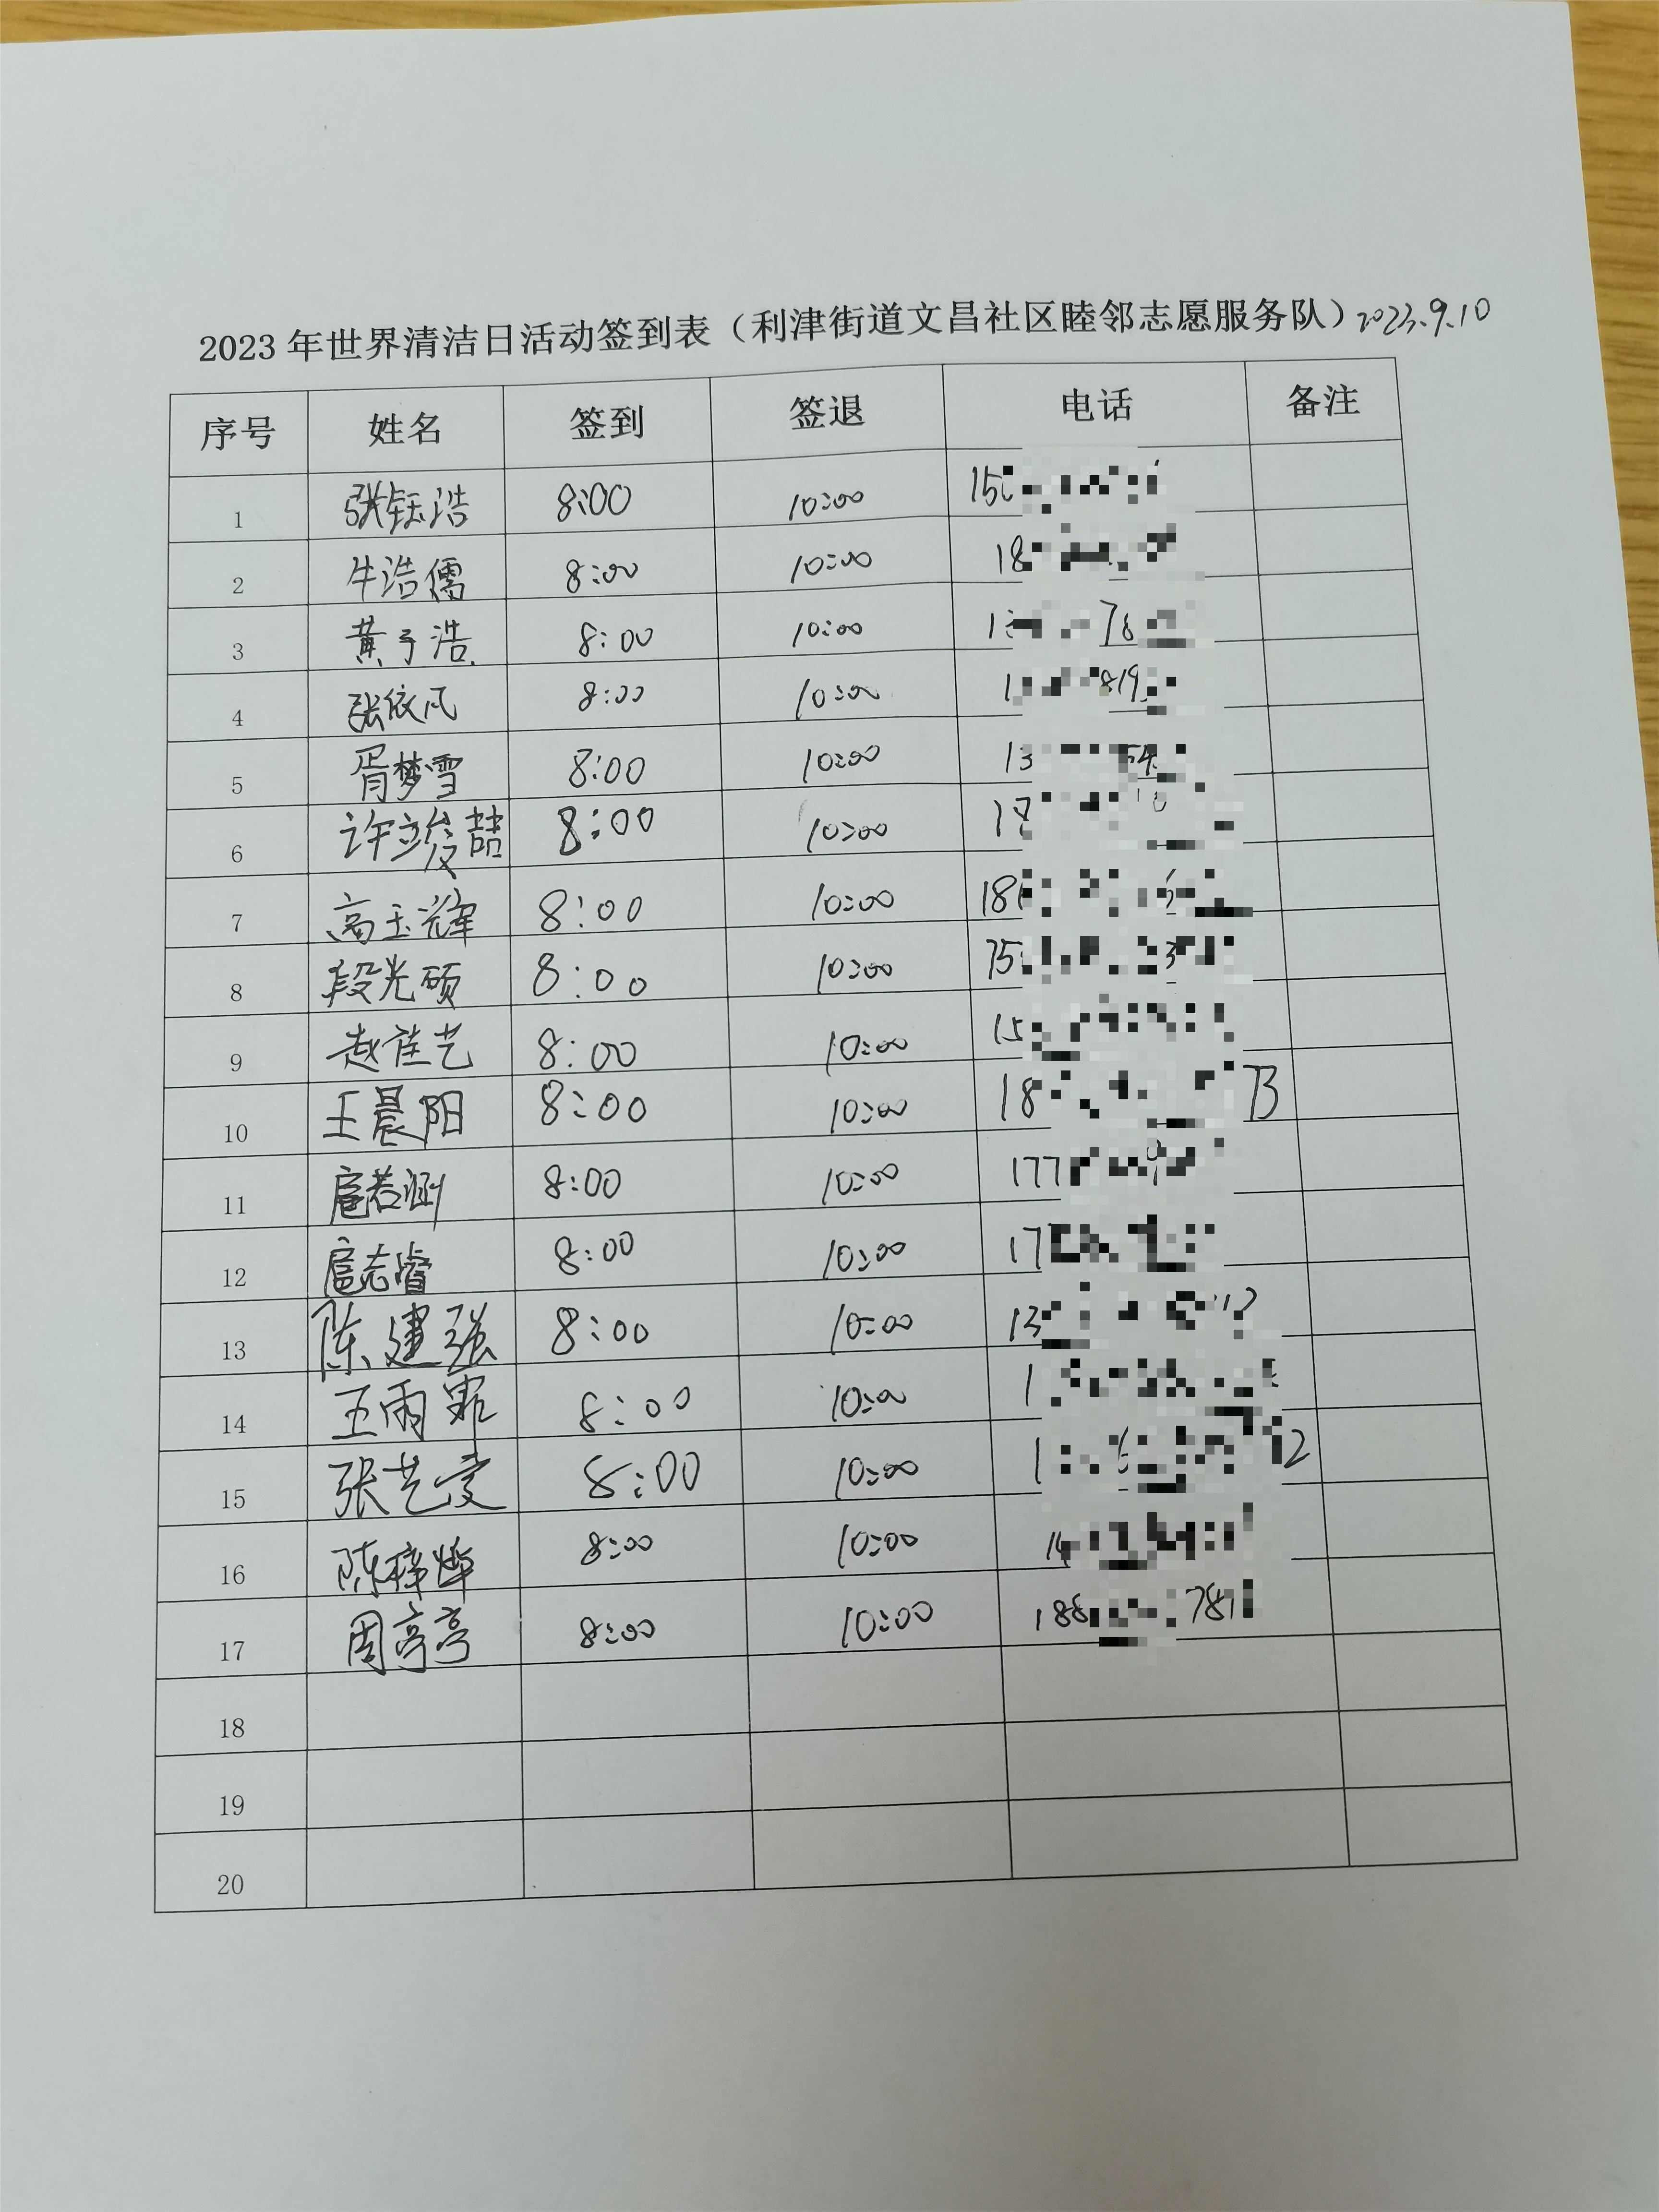 2023年世界清洁日活动签到表（利津街道文昌社区睦邻志愿服务队）2023.9.10
序号 姓名 签到 签退 电话 备注
1 张钰浩 8:00 10:00 15
2 牛浩儒 8:00 10:00 18
3 黄予浩 8:00 10:00 1 78
4 张依凡 8:00 10:00 1 819
5 胥梦雪 8:00 10:00 13 54
6 许竣喆 8:00 10:00 1
7 高玉辉 8:00 10:00 18
8 段光硕 8:00 10:00 15 3
9 赵佳艺 8:00 10:00 15
10 王晨阳 8:00 10:00 18 73
11 扈若涵 8:00 10:00 177
12 扈志睿 8:00 10:00 17
13 陈建强 8:00 10:00 13
14 王雨霏 8:00 10:00 1
15 张艺雯 8:00 10:00 1 6 2
16 陈梓烨 8:00 10:00 1
17 周亭亭 8:00 10:00 188 781
18
19
20